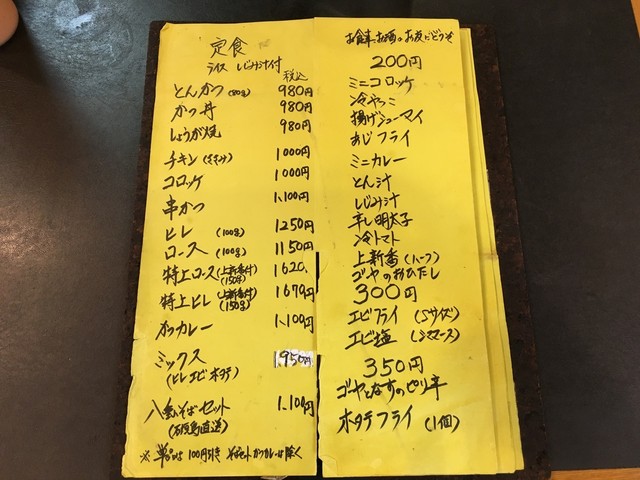 定食
ライス しじみ汁付
税込
とんかつ (80g) 980円
かつ丼 980円
しょうが焼 980円
チキン (ささみ) 1000円
コロッケ 1000円
串かつ 1.100円
ヒレ (100g) 1250円
ロース (100g) 1150円
特上ロース (上新香付) (150g) 1620、
特上ヒレ (上新香付) (150g) 1670円
カツカレー 1.100円
ミックス 1,950円
(ヒレエビホタテ)
八重山そばセット 1.100円
(石垣島直送)
※ 単品は100円引き そばセットカツカレーは除く
お食事、お酒のお友にどうぞ
200円
ミニコロッケ
冷やっこ
揚げシューマイ
あじフライ
ミニカレー
とん汁
しじみ汁
辛し明太子
冷トマト
上新香 (ハーフ)
ゴーヤのおひたし
300円
エビフライ (Sサイズ)
エビ塩
350円
ゴーヤとなすのピリ辛
ホタテフライ (1個)